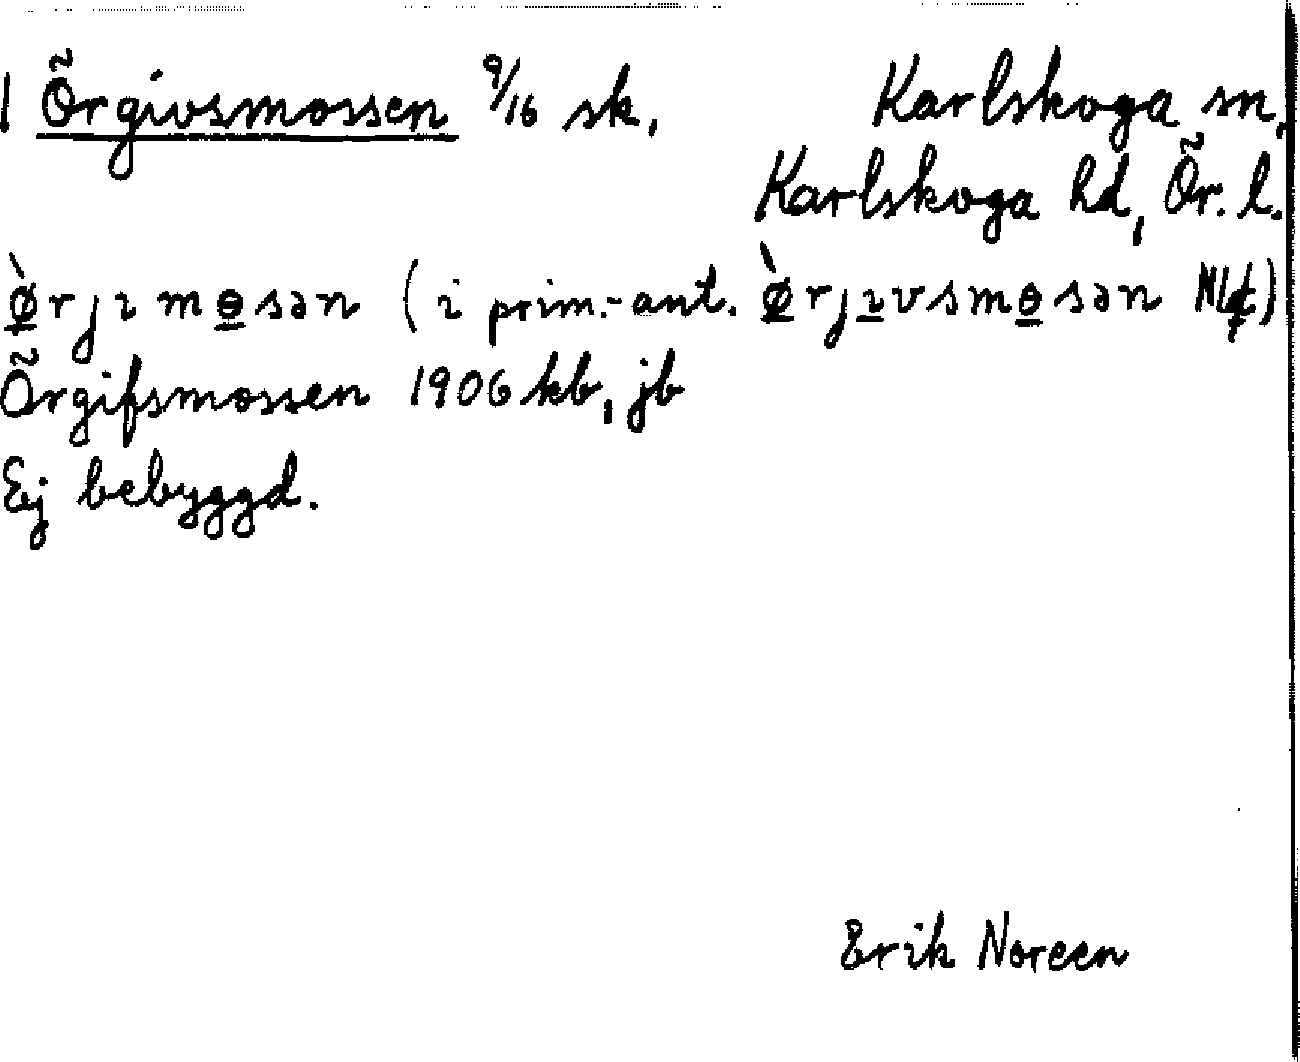 1 Örgivsmossen 9/16 sk. Karlskoga sn,
Karlskoga hd, Ör. l.
ø̀rjımɵsən (i prim.-ant. ø̀rjıvsmɵsən
Örgifsmossen 1906 kb, jb
Ej bebyggd.
Erik Noreen